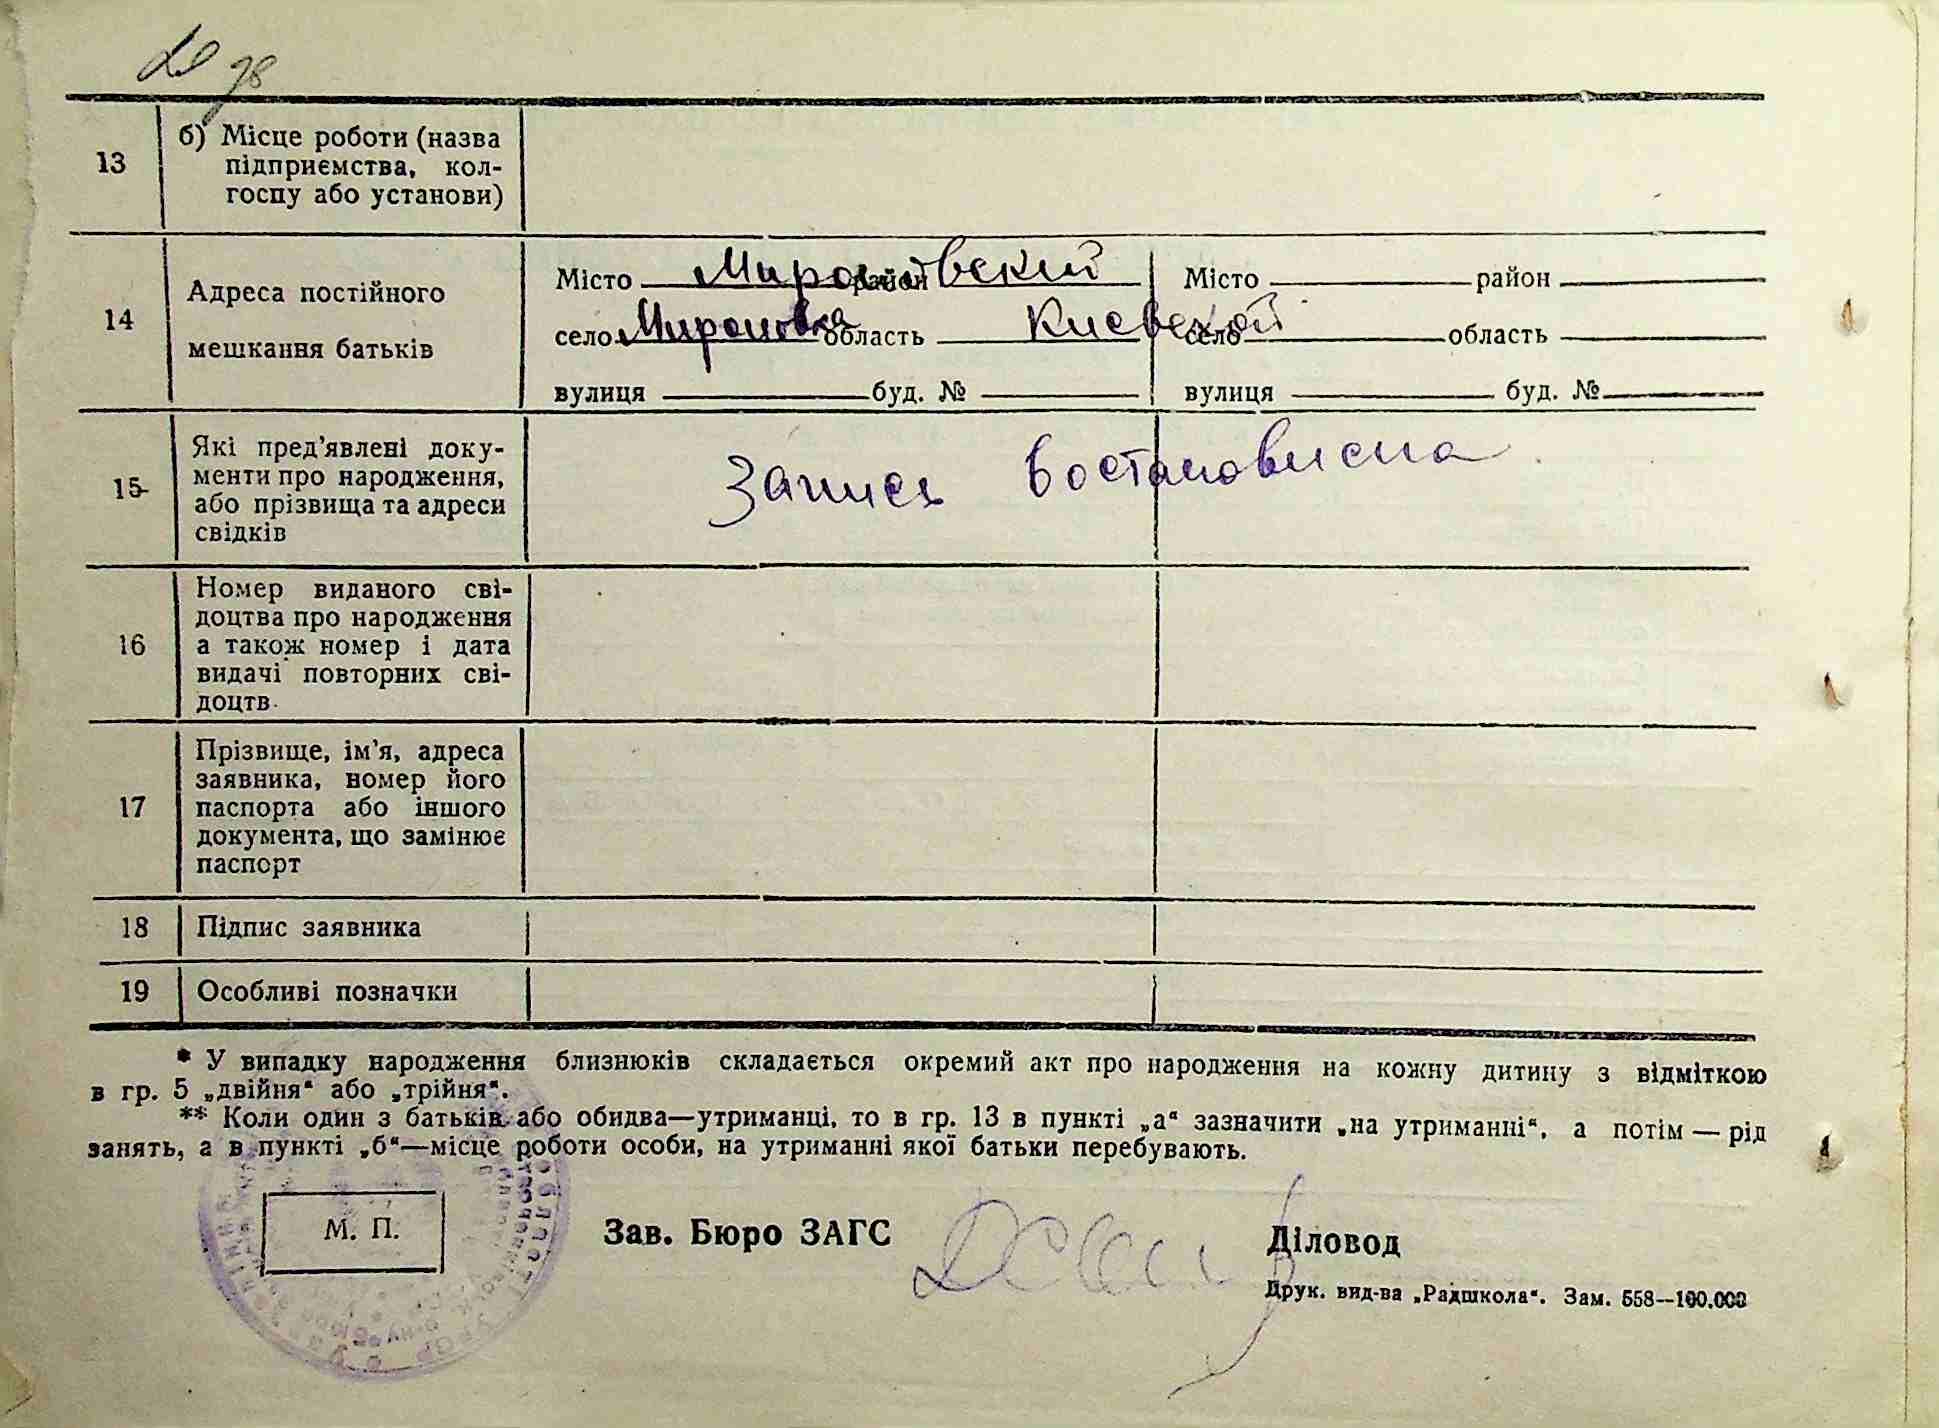 13 б) Місце роботи (назва
підприємства, кол-
госпу або установи)
14 Адреса постійного
мешкання батьків
Місто Мироновский район Місто район
село Мироновка область Киевской село область
вулиця буд. № вулиця буд. №
15 Які пред'явлені доку-
менти про народження,
або прізвища та адреси
свідків
Запись востановлена
16 Номер виданого сві-
доцтва про народження
а також номер і дата
видачі повторних сві-
доцтв.
17 Прізвище, ім'я, адреса
заявника, номер його
паспорта або іншого
документа, що замінює
паспорт
18 Підпис заявника
19 Особливі позначки
* У випадку народження близнюків складається окремий акт про народження на кожну дитину з відміткою
в гр. 5 „двійня“ або „трійня“.
** Коли один з батьків або обидва—утриманці, то в гр. 13 в пункті „а“ зазначити „на утриманні“, а потім — рід
занять, а в пункті „б“—місце роботи особи, на утриманні якої батьки перебувають.
М. П. Зав. Бюро ЗАГС Діловод
Друк. вид-ва „Радшкола“. Зам. 558—100.000